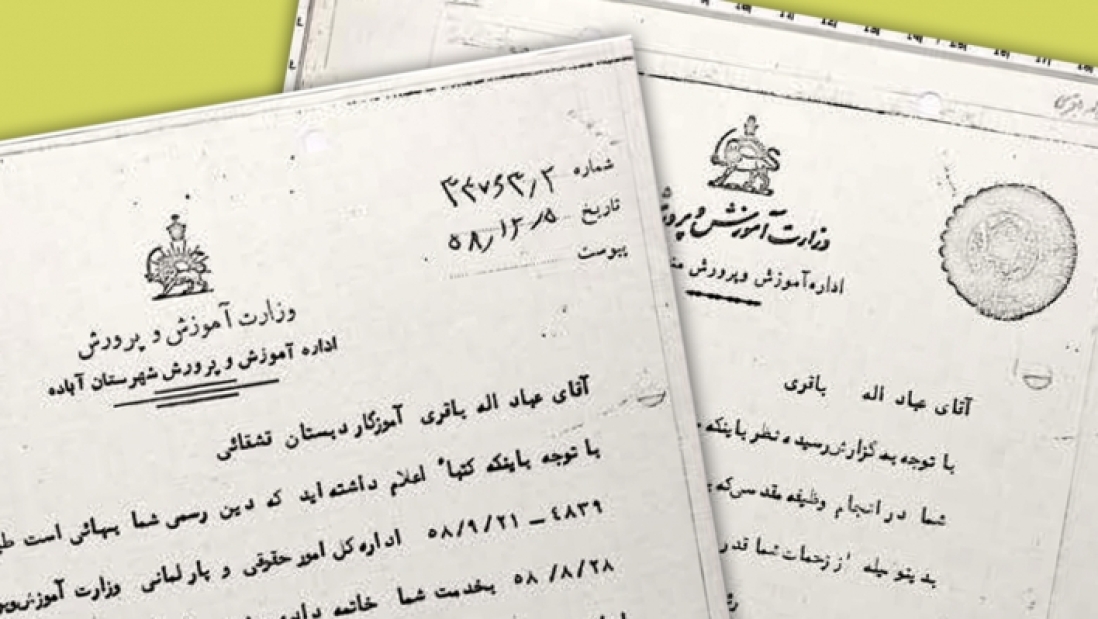 شماره ۳۴۷۶۳/۲
تاریخ ۵۸/۱۲/۵
پیوست
وزارت آموزش و پرورش
اداره آموزش و پرورش شهرستان آباده
آقای عباد اله باقری آموزگار دبستان قشقائی
با توجه باینکه کتبا" اعلام داشته اید که دین رسمی شما بهائی است
۴۸۳۹ – ۵۸/۹/۲۱ اداره کل امور حقوقی و پارلمانی وزارت آموزش
۵۸/۸/۲۸ بخدمت شما خاتمه
وزارت آموزش و
اداره آموزش و پرورش
آقای عباد اله باقری
با توجه به گزارش رسیده نظر باینکه
شما در انجام وظیفه مقدسی که
بدینوسیله از زحمات شما